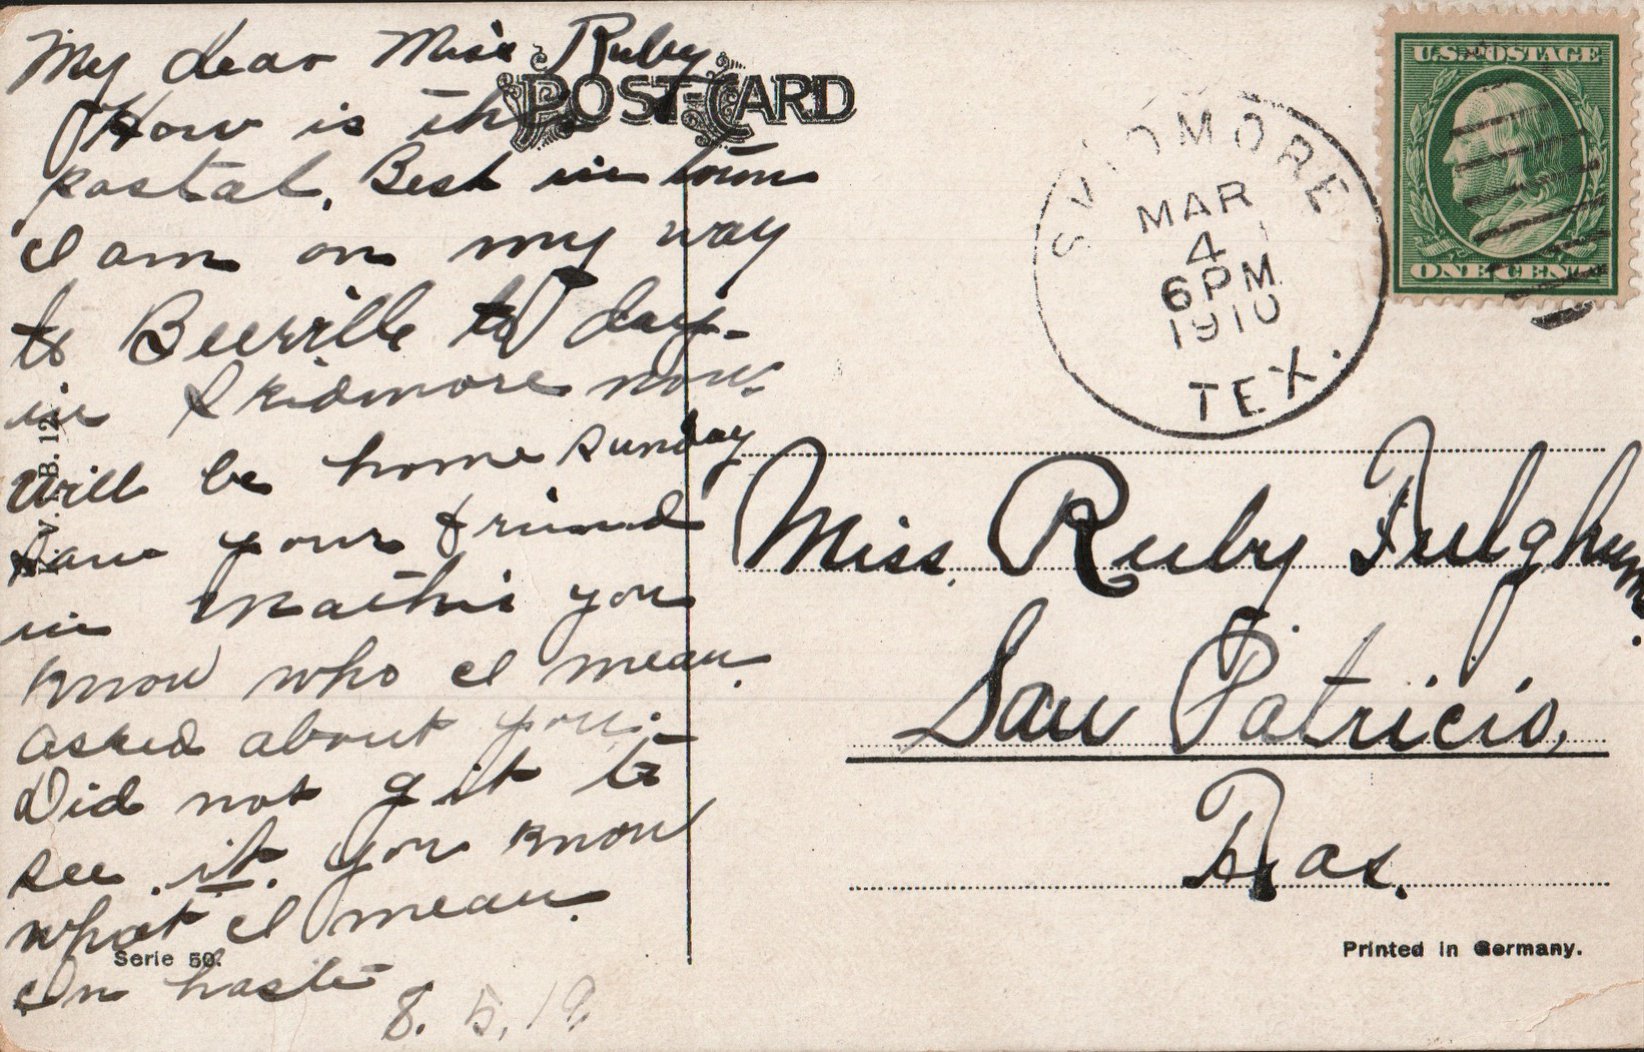 My dear Miss Ruby
How is this
postal. Best in town
I am on my way
to Beeville to day-
in Skidmore now.
Will be home Sunday
Saw your friend
in Mathis you
know who I mean.
asked about you.-
Did not git to
see .it. you know
what I mean.
In haste
8. 5. 19.
POST-CARD
8. 12.
Serie 50.
SKIDMORE
MAR
4
6 PM
1910
TEX.
U.S. POSTAGE
ONE CENT
Miss. Ruby Fulghum.
San Patricio,
Texas.
Printed in Germany.